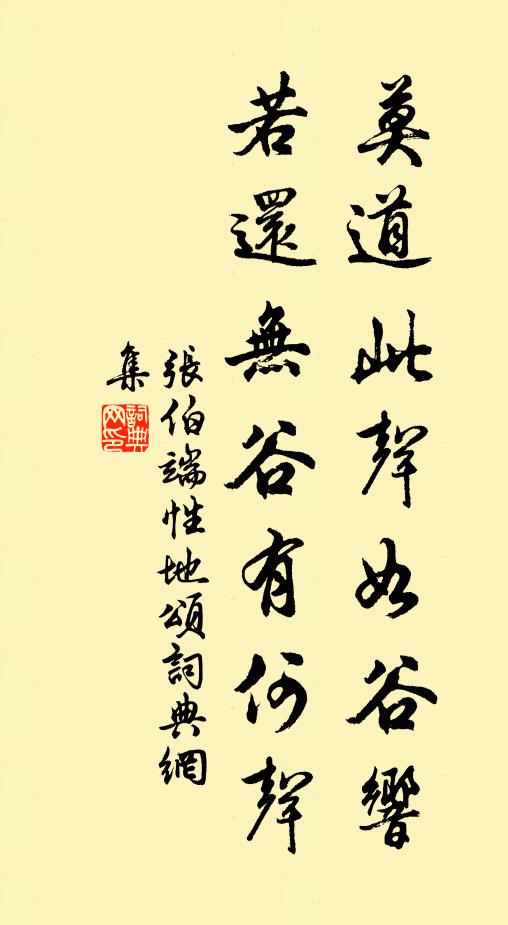 莫道此聲如谷響
若還無谷有何聲
張伯端性地頌詞典網
集
詞典網印